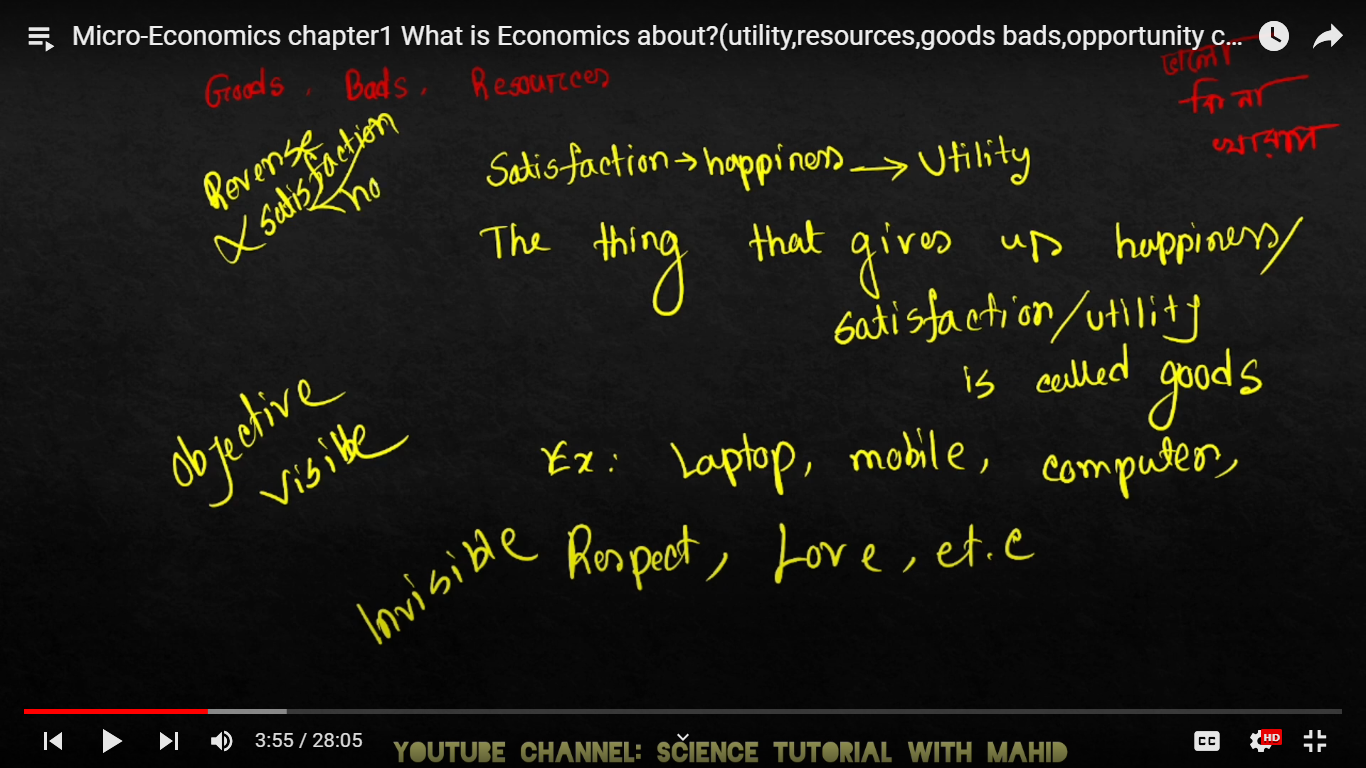 Micro-Economics chapter1 What is Economics about?(utility,resources,goods bads,opportunity c...
Goods, Bads, Resources
কি না
খারাপ
Reverse
satisfaction
no
Satisfaction → happiness → Utility
The thing that gives us happiness/
satisfaction/utility
is called goods
Objective
visible
Ex: Laptop, mobile, computer,
Invisible
Respect, Love, et.c
3:55 / 28:05
CC
HD
YOUTUBE CHANNEL: SCIENCE TUTORIAL WITH MAHID